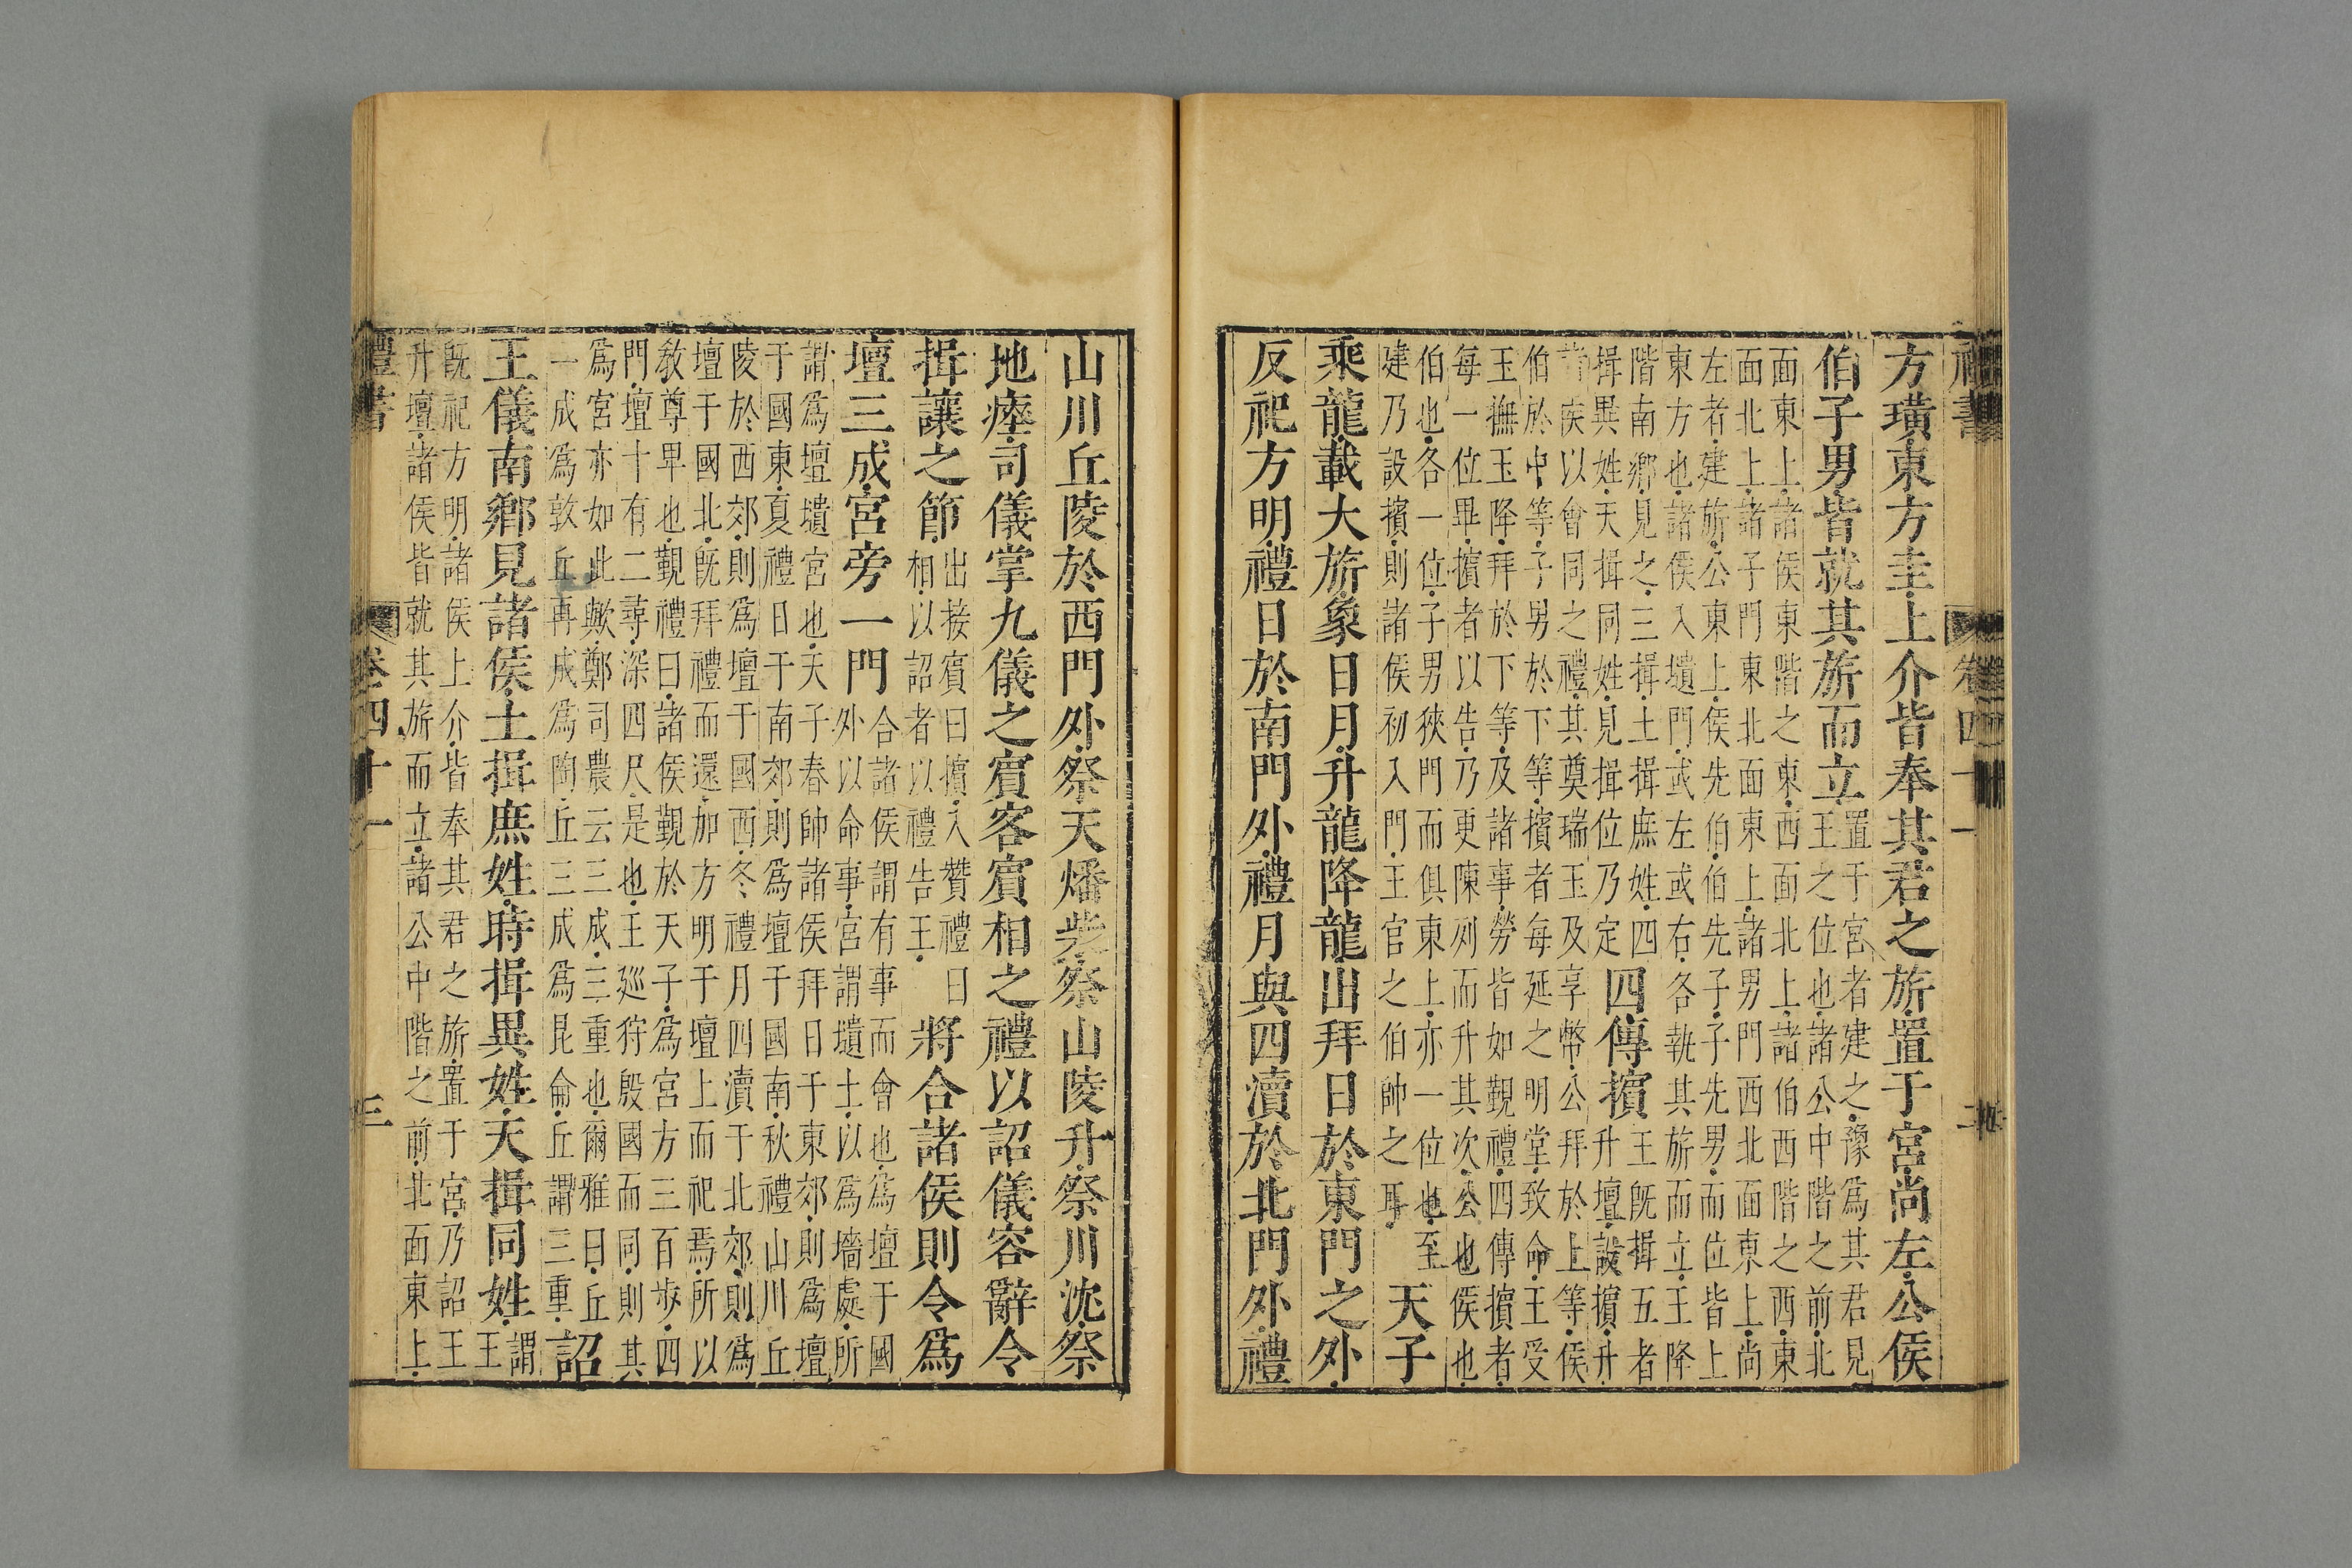 禮書
卷四十一
二
方璜東方圭上介皆奉其君之旂置于宮尚左公侯
伯子男皆就其旂而立置于宮者建之豫爲其君見
王之位也諸公中階之前北
面東上諸侯東階之東西面北上諸伯西階之西東
面北上諸子門東北面東上諸男門西北面東上尚
左者建旂公東上侯先伯伯先子子先男而位皆上
東方也諸侯入壝門或左或右各執其旂而立王降
階南鄉見之三揖土揖庶姓四
揖異姓天揖同姓見揖位乃定
四傳擯王既揖五者
升壇設擯升
諸侯以會同之禮其奠瑞玉及享幣公拜於上等侯
伯於中等子男於下等擯者每延之明堂致命王受
玉撫玉降拜於下等及諸事勞皆如覲禮四傳擯者
每一位畢擯者以告乃更陳列而升其次公也侯也
伯也各一位子男狹門而俱東上亦一位也至
建乃設擯則諸侯初入門王官之伯帥之耳
天子
乘龍載大旂象日月升龍降龍出拜日於東門之外
反祀方明禮日於南門外禮月與四瀆於北門外禮
山川丘陵於西門外祭天燔柴祭山陵升祭川沈祭
地瘞司儀掌九儀之賓客賓相之禮以詔儀容辭令
揖讓之節出接賓曰擯入贊禮曰
相以詔者以禮告王
將合諸侯則令爲
壇三成宮旁一門合諸侯謂有事而會也爲壇于國
外以命事宮謂壝土以爲墻處所
謂爲壇壝宮也天子春帥諸侯拜日于東郊則爲壇
于國東夏禮日于南郊則爲壇于國南秋禮山川丘
陵於西郊則爲壇于國西冬禮月四瀆于北郊則爲
壇于國北既拜禮而還加方明于壇上而祀焉所以
教尊卑也覲禮曰諸侯覲於天子爲宮方三百步四
門壇十有二尋深四尺是也王廵狩殷國而同則其
爲宮亦如此歟鄭司農云三成三重也爾雅曰丘
一成爲敦丘再成爲陶丘三成爲昆侖丘謂三重
詔
王儀南鄉見諸侯土揖庶姓時揖異姓天揖同姓謂
王
既祀方明諸侯上介皆奉其君之旂置于宮乃詔王
升壇諸侯皆就其旂而立諸公中階之前北面東上
禮書
卷四十一
三